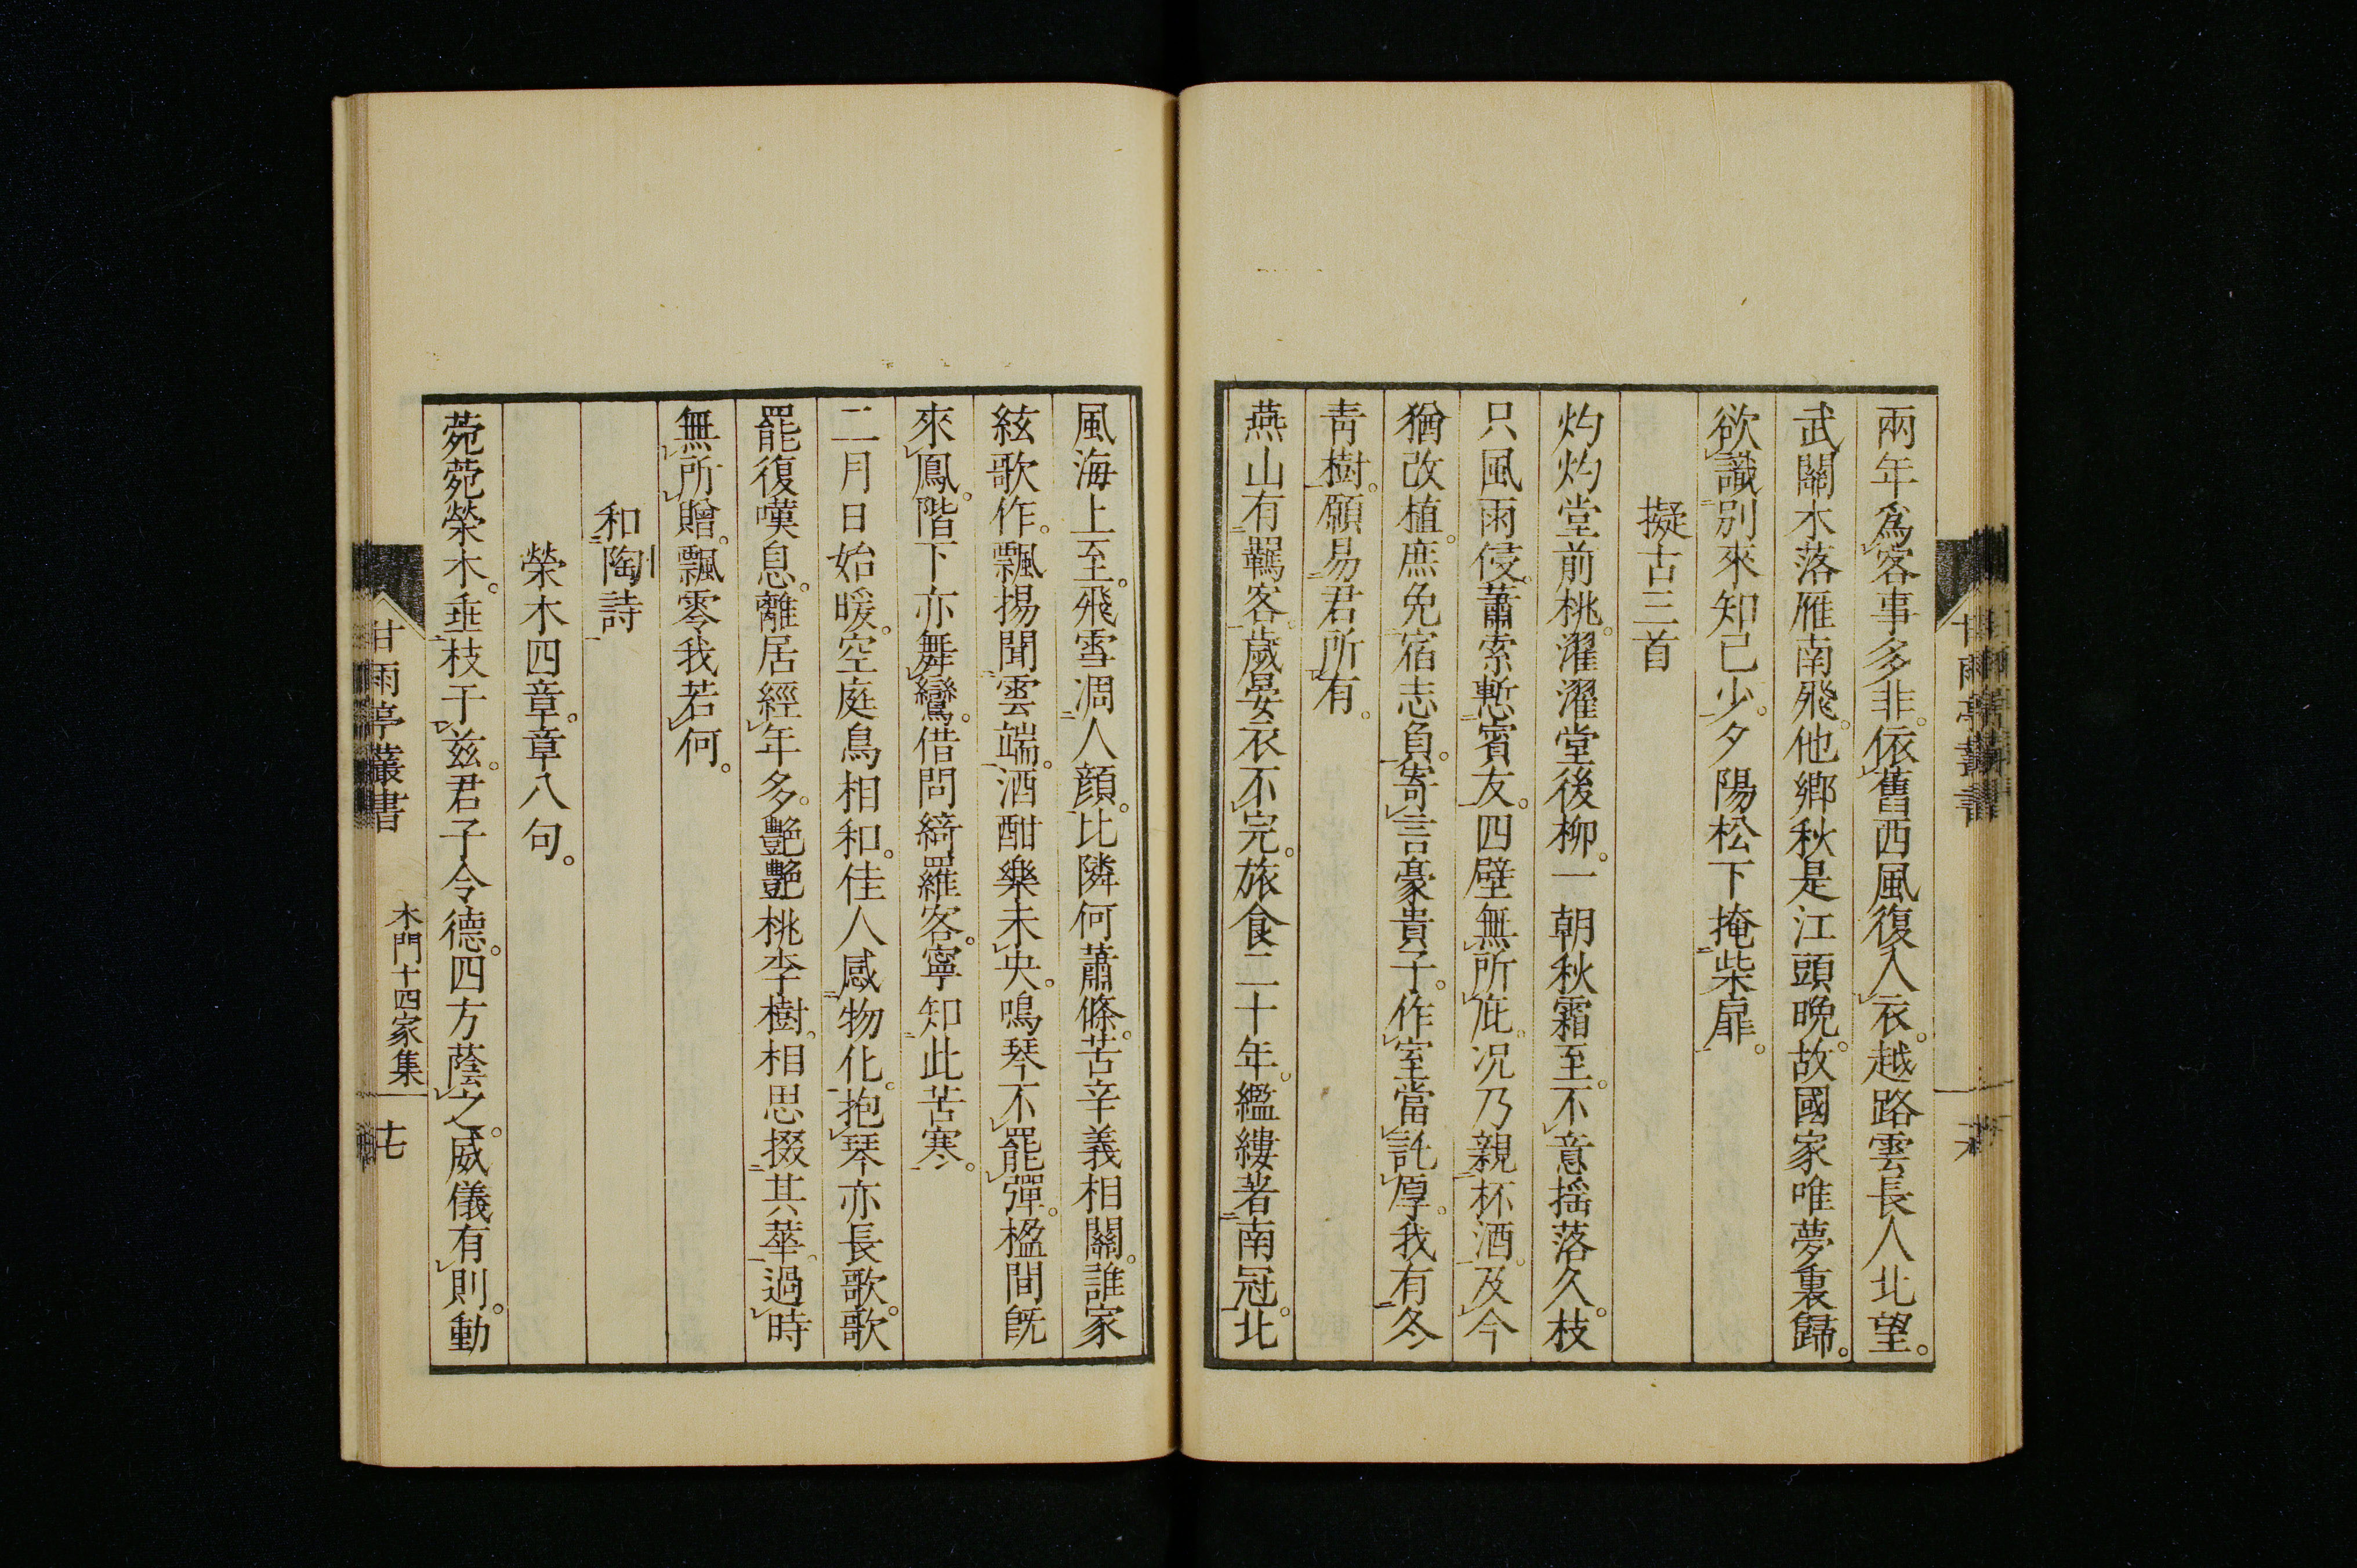 兩年爲客事多非。依舊西風復入衣。越路雲長人北望。
武關木落雁南飛。他鄉秋是江頭晚。故國家唯夢裏歸。
欲識別來知己少。夕陽松下掩柴扉。
擬古三首
灼灼堂前桃。濯濯堂後柳。一朝秋霜至。不意搖落久。枝
只風雨侵。蕭索慙賓友。四壁無所庇。况乃親杯酒。及今
猶改植。庶免宿志負。寄言豪貴子。作室當託厚。我有冬
青樹。願易君所有。
燕山有羈客。歲晏衣不完。旅食二十年。繿縷著南冠。北
風海上至。飛雪凋人顔。比隣何蕭條。苦辛義相關。誰家
絃歌作。飄揚聞雲端。酒酣樂未央。鳴琴不罷彈。楹間旣
來鳳。階下亦舞鸞。借問綺羅客。寧知此苦寒。
二月日始暖。空庭鳥相和。佳人感物化。抱琴亦長歌。歌
罷復嘆息。離居經年多。艷艷桃李樹。相思掇其華。過時
無所贈。飄零我若何。
和陶詩
榮木四章。章八句。
菀菀榮木。垂枝于茲。君子令德。四方蔭之。威儀有則。動
甘雨亭叢書
木門十四家集
十七